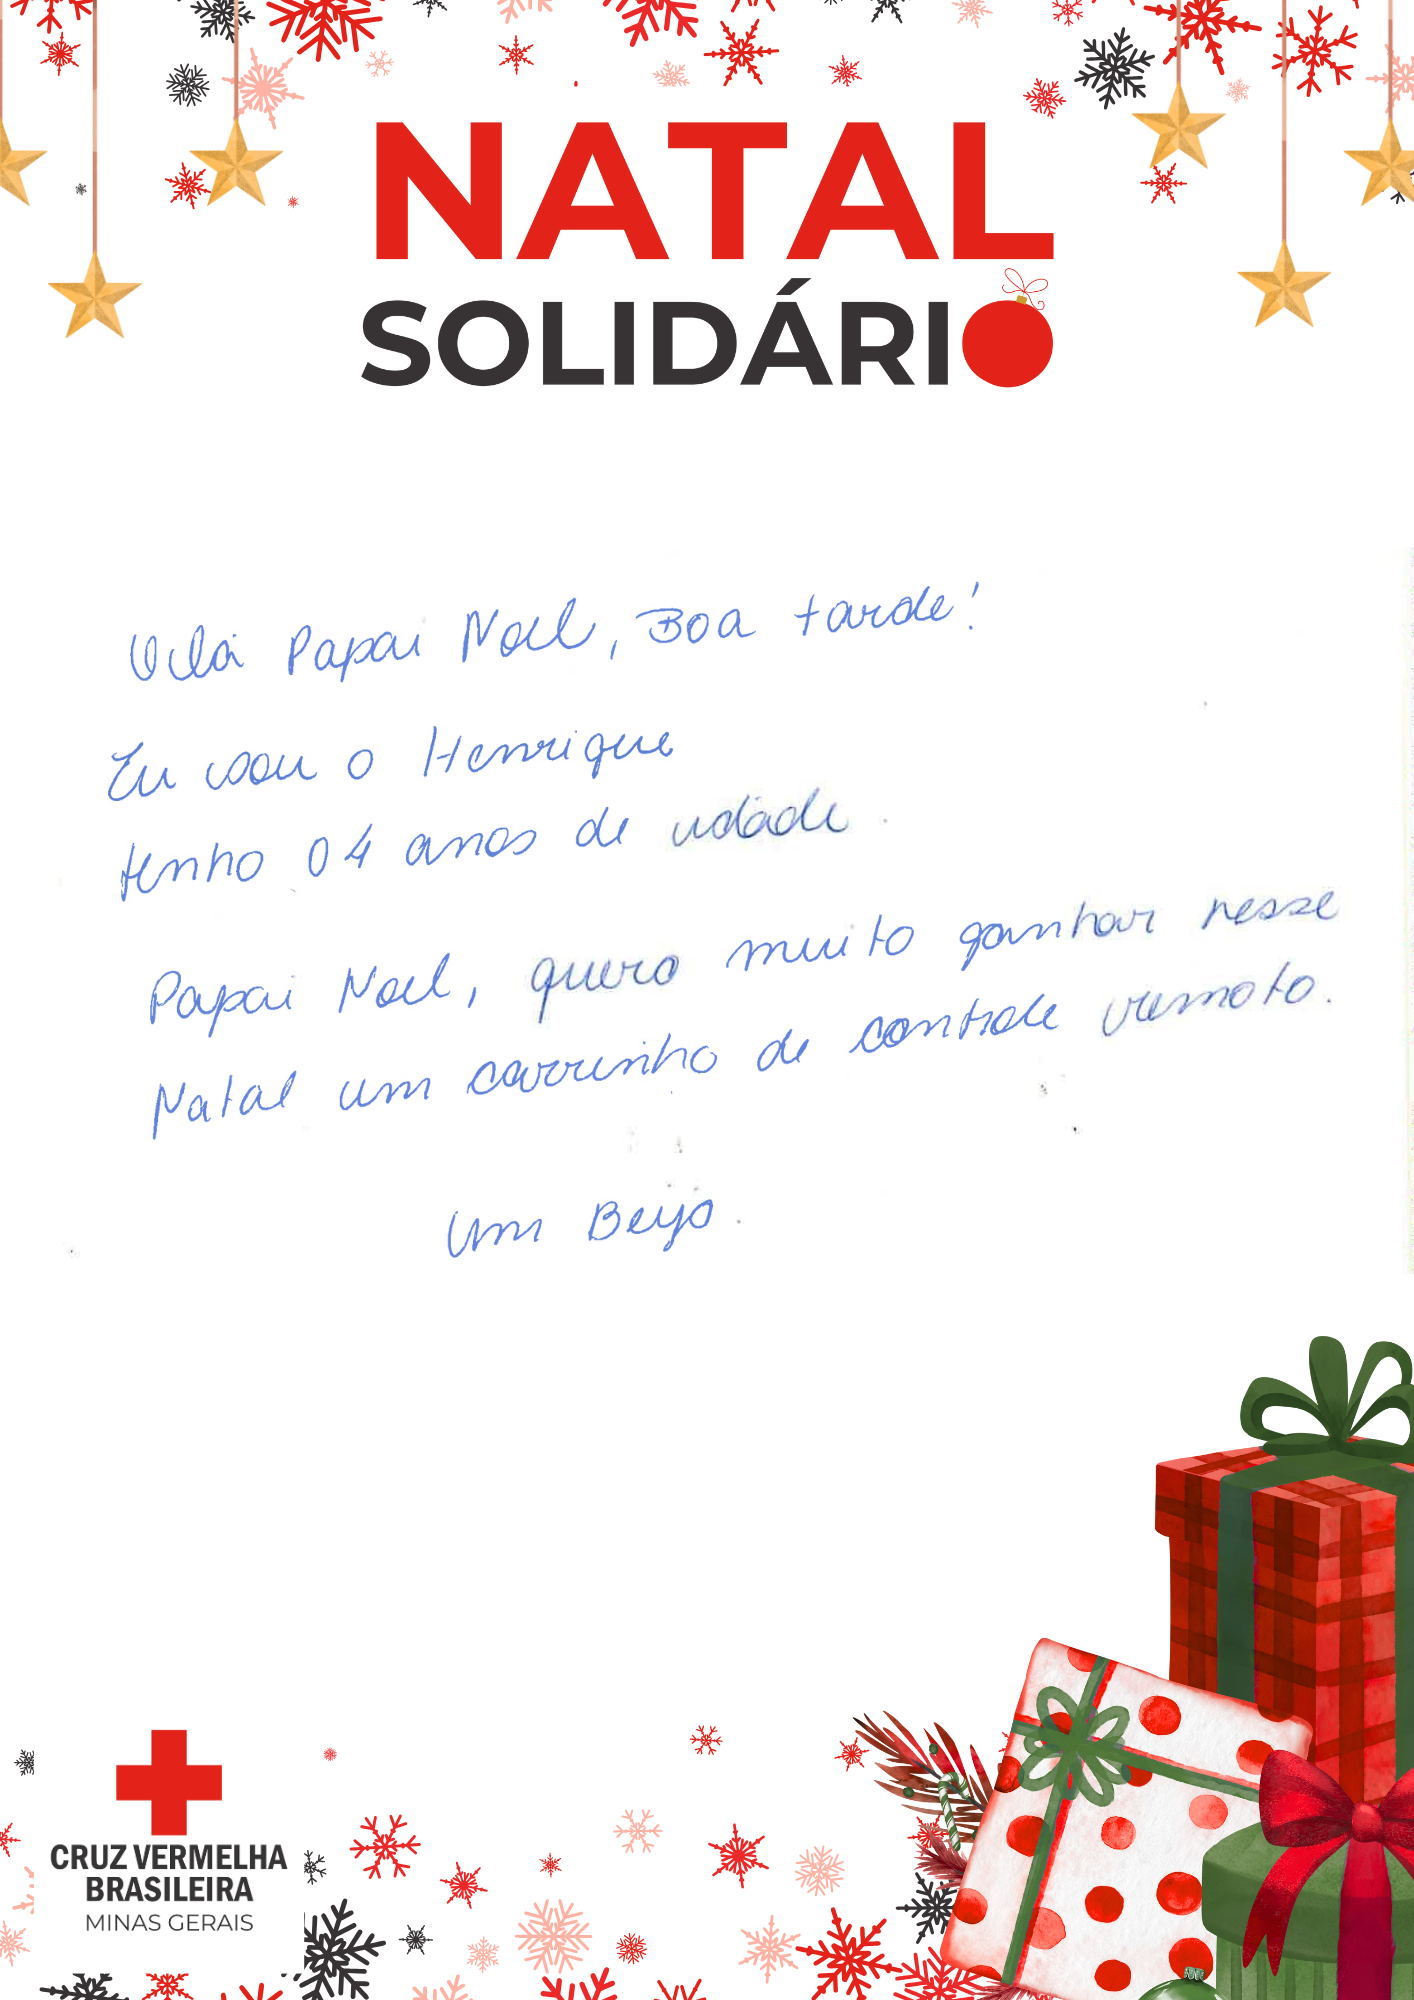 NATAL
SOLIDÁRIO
Olá Papai Noel, Boa tarde!
Eu sou o Henrique
tenho 04 anos de idade.
Papai Noel, quero muito ganhar nesse
Natal um carrinho de controle remoto.
Um Beijo.
CRUZ VERMELHA
BRASILEIRA
MINAS GERAIS